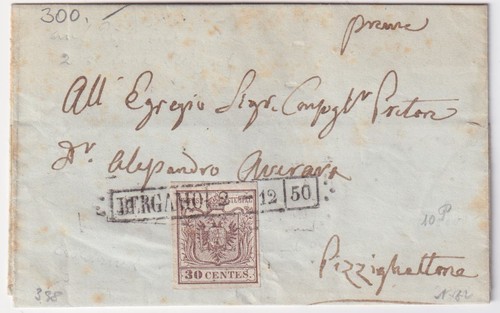 300.
preme
2
All' Egregio Sigr. Consigler Pretore
Dr. Alessandro Averara
BERGAMO 2 12 50
30 CENTES.
10 P.
Pizzighettone
398